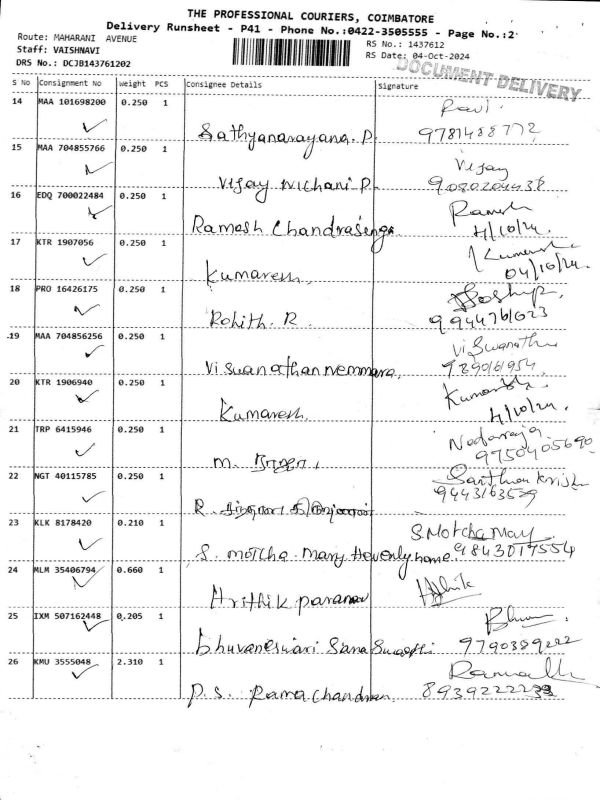 THE PROFESSIONAL COURIERS, COIMBATORE
Delivery Runsheet - P41 - Phone No.:0422-3505555 - Page No.:2
Route: MAHARANI AVENUE
RS No.: 1437612
Staff: VAISHNAVI
RS Date: 04-Oct-2024
DRS No.: DCJB143761202
DOCUMENT DELIVERY
S No Consignment No Weight PCS Consignee Details Signature
14 MAA 101698200 0.250 1 Ravi
Sathyanarayana. P. 9781488772
15 MAA 704855766 0.250 1 Vijay
Vijay Nichani P.
16 EDQ 700022484 0.250 1 Ramesh
Ramesh Chandrasenga 4/10/24.
17 KTR 1907056 0.250 1
Kumaresh. 04/10/24.
18 PRO 16426175 0.250 1
Rohith. R.
19 MAA 704856256 0.250 1 Viswanath
Viswanathan Nemmara.
20 KTR 1906940 0.250 1
Kumaresh. 4/10/24.
21 TRP 6415946 0.250 1 Nadaraja
M. 9750405690
22 NGT 40115785 0.250 1
R.
23 KLK 8178420 0.210 1 S. Motcha Mary
S. Motcha Mary Hevenly home. 9843017554
24 MLM 35406794 0.660 1
Hrithik Paranav
25 IXM 507162448 0.205 1
Bhuvaneswari Sana Swasthi 9790389222
26 KMU 3555048 2.310 1
P. S. Rama Chandran.